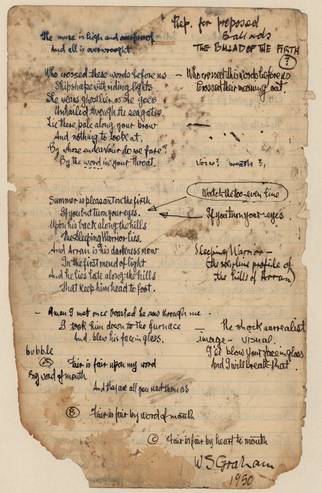 Prep. for proposed
Ballads
THE BALLAD OF THE FIRTH
?
The muse is high and
And all is overwrought
Who crossed these words before us
Shipshape with riding lights
She wears ghostlier as she goes
through the
Lie then pale along your brow
And nothing to look at.
By whose endeavour do we fare?
By the word in your throat.
- Who crossed this word before us
Crossed their meaning out.
voice? mouth?
Watch the too-even line
Summer is pleasant on the firth
If you but turn your eyes.
If you turn your eyes
Upon his back along the hills
The Sleeping Warrior lies.
And Arran is his darkness now
In the first mend of light
And he lies late along the hills
That keep him head to foot.
Sleeping Warrior -
the skyline profile of
the hills of Arran
- A man I met once boasted he saw through me.
I took him down to the furnace
And blew his face in glass.
- the shock surrealist
image - visual.
I'd blow your face in glass
And I will break that.
bubble
(A) Fair is fair upon my word
By word of mouth
And they are all you
(B) Fair is fair by word of mouth
(C) Fair is fair by heart to mouth
W S Graham
1950